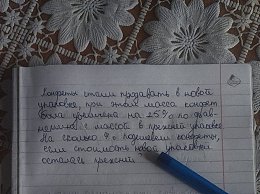 Конфеты стали продавать в новой
упаковке, при этом масса конфет
была увеличена на 25% по срав-
нению с массой в прежней упаковке.
На сколько % подешевели конфеты,
если стоимость новой упаковки
осталась прежней